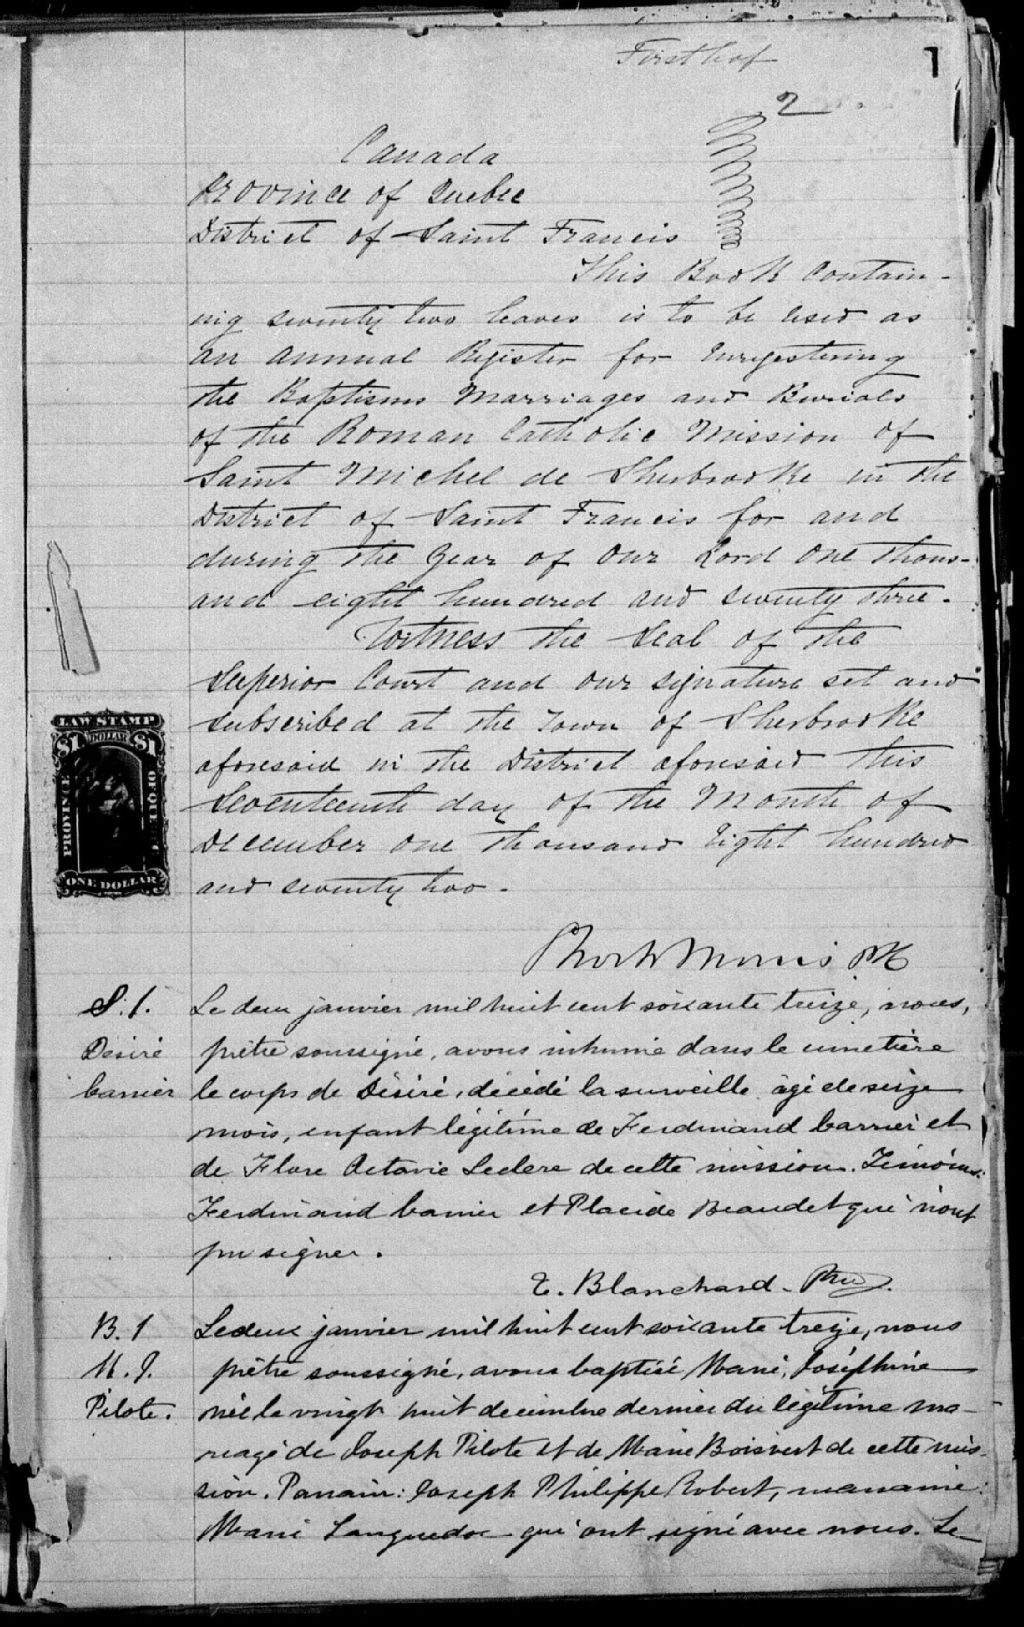 First
1
2
Canada
Province of Quebec
District of Saint Francis
This Book Contain-
ing seventy two leaves is to be used as
an annual Register for Enregistering
the Baptisms Marriages and Burials
of the Roman Catholic Mission of
Saint Michel de Sherbrooke in the
District of Saint Francis for and
during the Year of Our Lord One thous-
and eight hundred and seventy three.
Witness the Seal of the
Superior Court and our signature set and
subscribed at the Town of Sherbrooke
aforesaid in the District aforesaid this
Seventeenth day of the Month of
December one thousand Eight hundred
and seventy two.
LAW STAMP
$1 DOLLAR $1
PROVINCE
ONE DOLLAR
Morris
S. 1.
Désiré
barrier
Le deux janvier mil huit cent soixante treize, nous,
prêtre soussigné, avons inhumé dans le cimetière
le corps de Désiré, décédé la surveille âgé de seize
mois, enfant légitime de Ferdinand barrier et
de Flore Octavie Leclerc de cette mission. Témoins:
Ferdinand barrier et Placide Beaudet qui n'ont
pu signer.
E. Blanchard. Ptre
B. 1
M. J.
Pilote.
Le deux janvier mil huit cent soixante treize, nous
prêtre soussigné, avons baptisé Marie, Joséphine
née le vingt huit décembre dernier du légitime ma-
riage de Joseph Pilote et de Marie Boisvert de cette mis-
sion. Parrain: Joseph Philippe Robert, marraine:
Marie Languedoc qui ont signé avec nous. Le